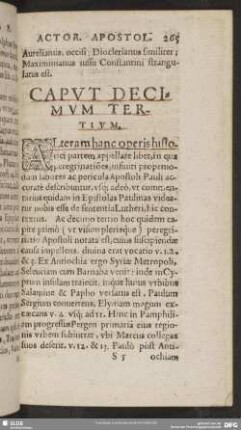 ACTOR. APOSTOL. 265
Aurelianus, occisi; Dioclerianus similiter;
Maximinianus iussu Constantini strangu-
latus est.
CAPVT DECI-
MVM TER-
TIVM.
ALteram hanc operis histo-
rici partem appellare libet, in qua
peregrinationes, infiniti propemo-
dum labores ac pericula Apostoli Pauli ac-
curatè describuntur, usq; adeò, ut com̃en-
tarius quidam in Epistolas Paulinas videa-
tur nobis esse de sententia Lutheri, hic con-
textus. Ac decimo tertio hoc quidẽm ca-
pite primò (ut visum plerisque) peregri-
natio Apostoli notata est, cuius suscipiendæ
causa impellens, divina erat vocatio v. 1. 2.
& 3. Ex Antiochia ergo Syriæ Metropoli,
Seleuciam cum Barnaba venit: inde in Cy-
prum insulam traiicit. inque huius urbibus
Salamine & Papho versatus est. Paulum
Sergium convertens, Elymam magum ex-
cæcans v. 4. usq; ad 12. Hinc in Pamphili-
am progressus Pergen primariã eius regio-
nis urbem subintrat, ubi Marcus collegas
suos deserit. v. 12. & 13. Paulò pòst Anti-
S 5 ochiam